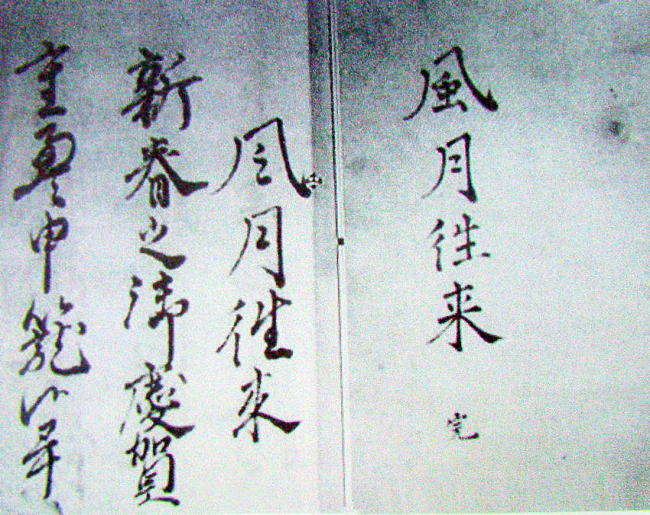 風月徃来
完
風月徃来
新春之御慶賀
重疊申籠候